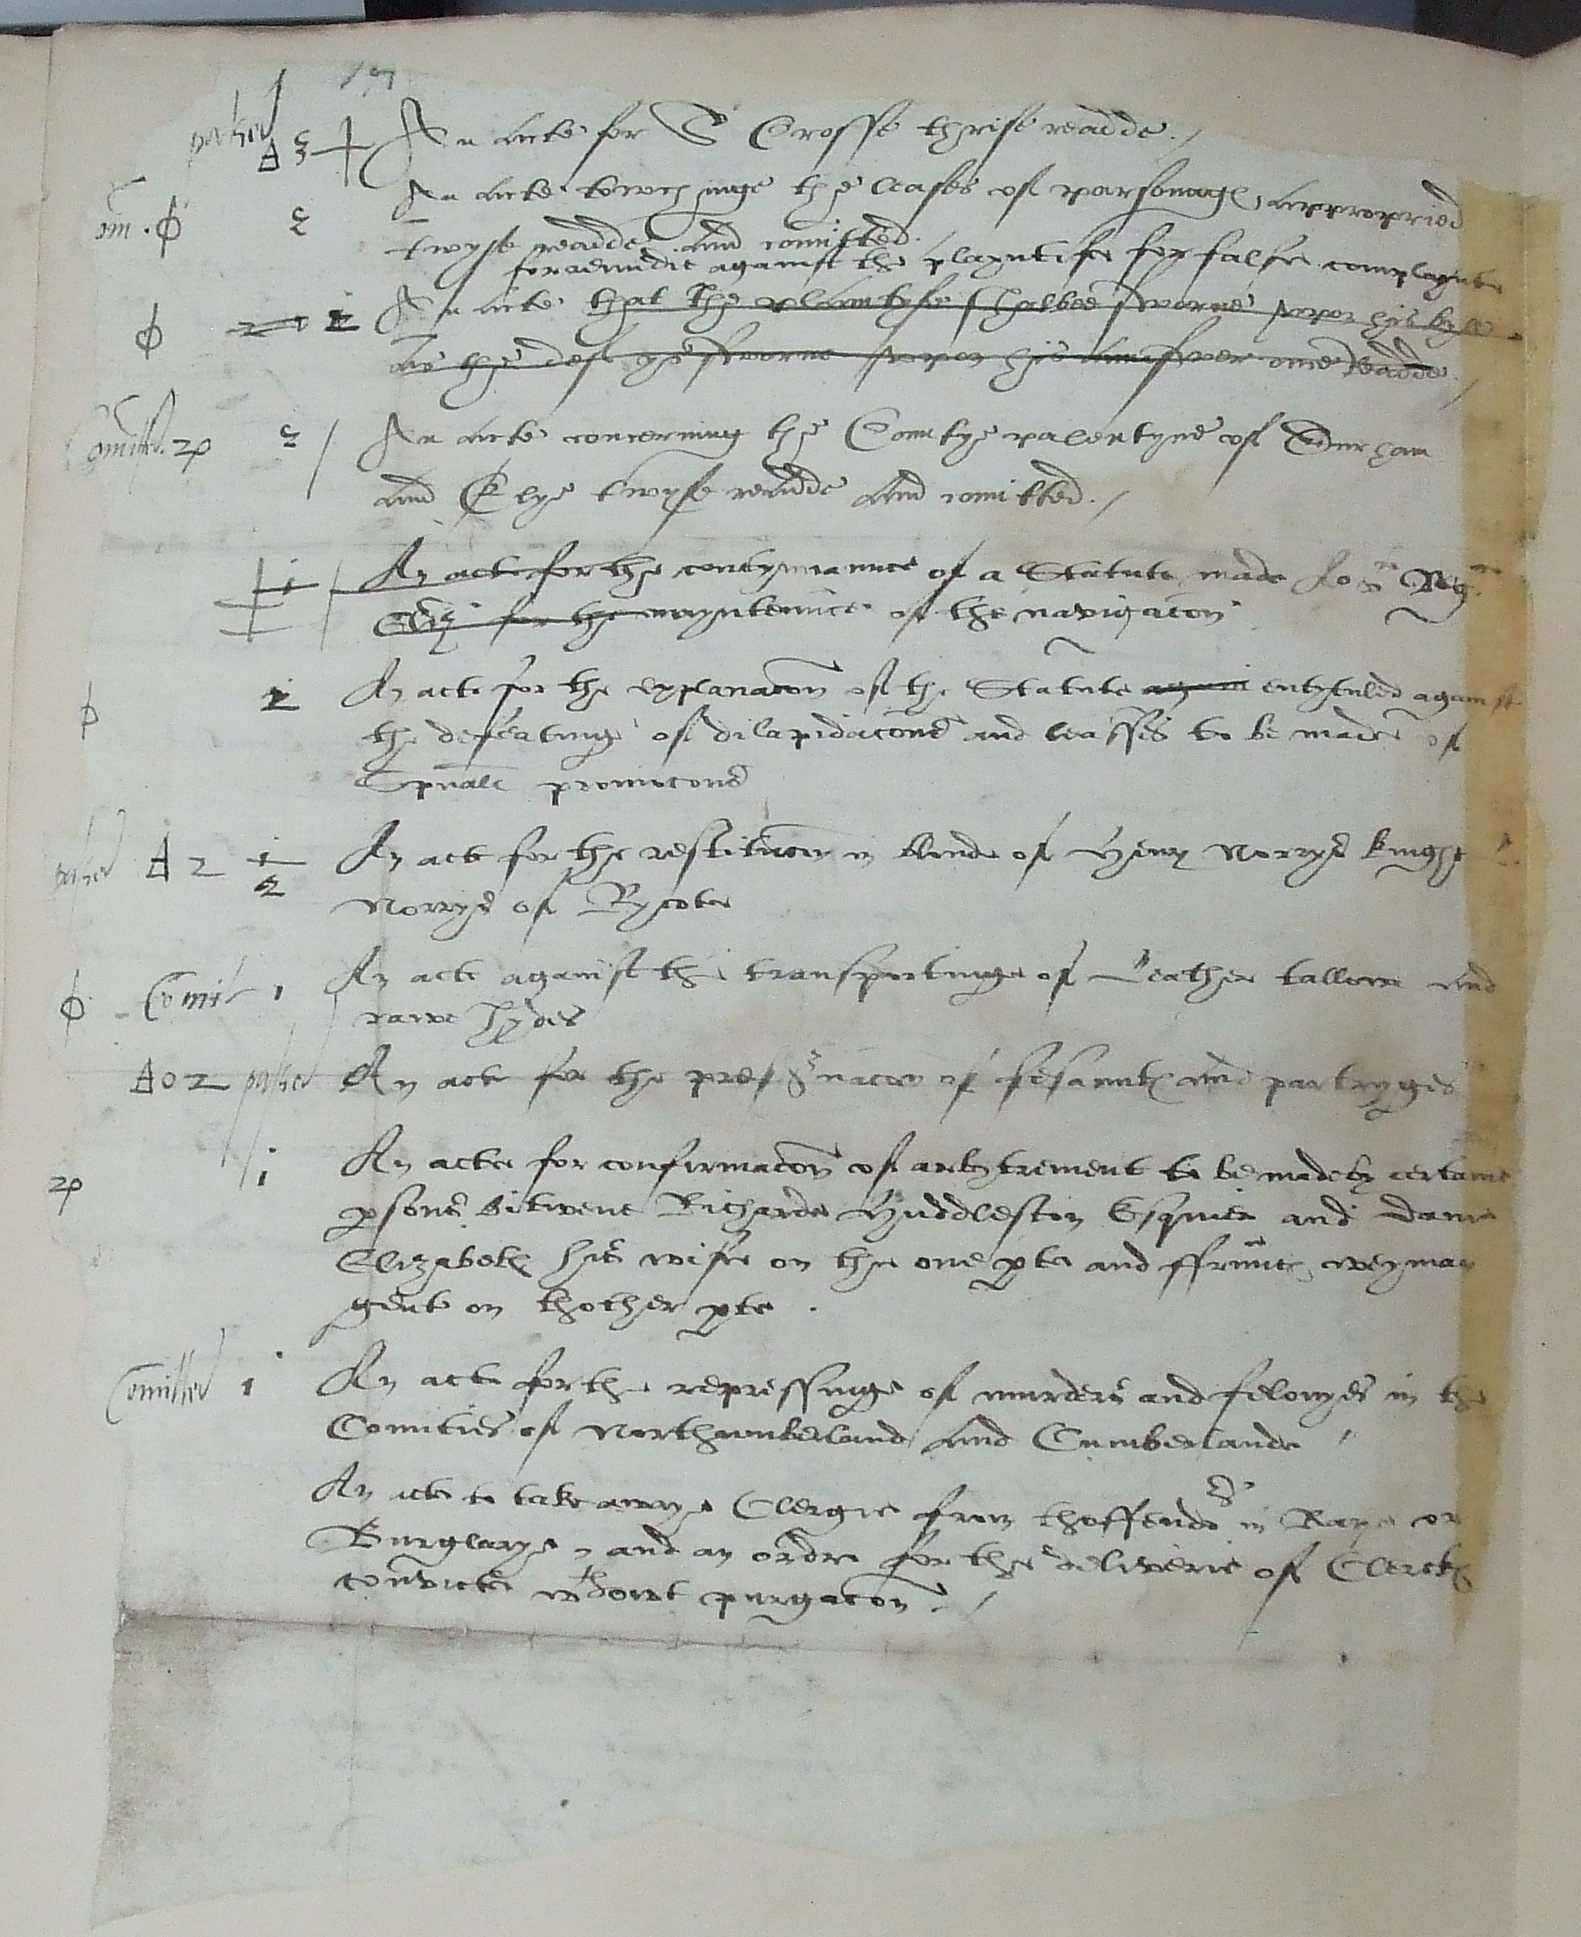 passed 3 An Acte for S Crosse thrise readde./
2 An Acte towchinge the leases of parsonag, appropried
twyse readde And comitted./
for remedie against the playntife for false complaynte
An Acte that the plaintyfe shalbee sworne uppon his byll
As the def ys sworne uppon his Aunswer once readde./
Comitted. 2 An Acte concerning the Countye palentyne of Durham
And Elye twyse readde And comitted./
i An acte for the contynuaunce of a Statute made Ao Reg
Eliz for the mayntennce of the navigacon
i An acte for the explanacon of the Statute again entytuled against
the defeating of dilapidacons and leasses to be made of
Spuall promocons
passed 2 i 2 An act for the restitucon in bloude of Henry Norrys knight L.
Norrys of Rycote
Comit 1 An acte against the transportinge of Leather tallow And
rawe hydes
passed An acte for the preservacon of fesaunts And partryges
i An acte for confirmacon of arbytrement to be made by certaine
psons bitwene Richarde Huddleston Esquier and dame
Elizabeth his wife on the one pte and ffraunces weyman
gent on thother pte.
Comitted 1 An acte for the repressinge of murders and felonyes in the
Counties of Northumberland And Cumberlande /
An acte to take awaye Clergie from thoffendors in Rape or
Burglarye, and an ordre for the deliverie of Clerks
convicte wthowt purgacon./